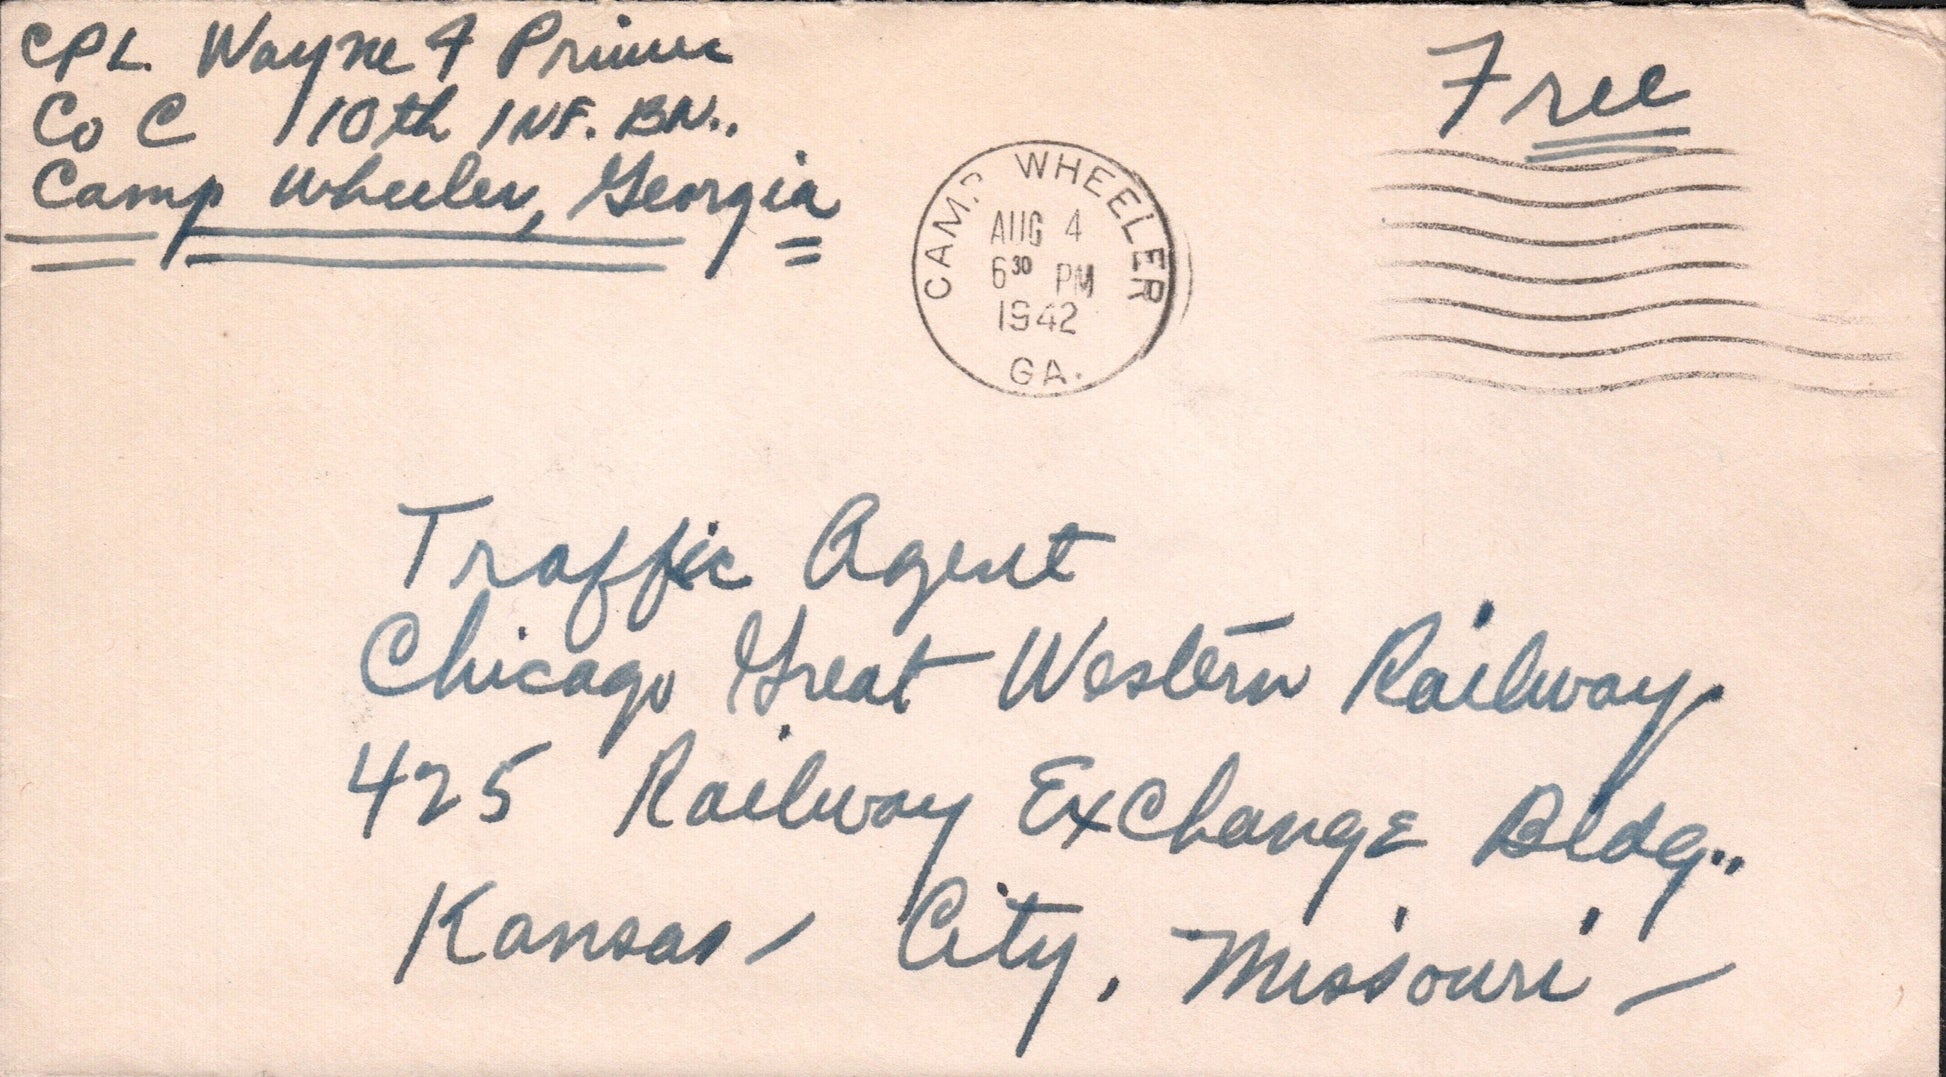 CPL. Wayne F Primer
Co C 10th INF. BN.,
Camp Wheeler, Georgia
Free
CAMP WHEELER
AUG 4
6 30 PM
1942
GA.
Traffic Agent
Chicago Great Western Railway
425 Railway Exchange Bldg.,
Kansas City, Missouri